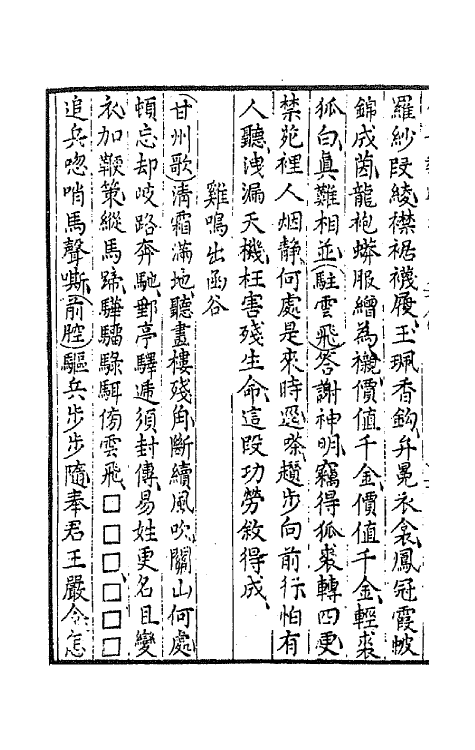 羅紗段綾襟裾襪履王珮香鈎弁冕衣衾鳳冠霞帔
錦成茵龍袍蟒服繒為襯價值千金價值千金輕裘
狐白真難相並駐雲飛答謝神明竊得狐裘轉四更
禁苑裡人烟静何處是來時逕嗏趲步向前行怕有
人聽洩漏天機枉害殘生命這段功勞敘得成
雞鳴出函谷
甘州歌清霜滿地聽畫樓殘角斷續風吹關山何處
頓忘却岐路奔馳郵亭驛遞須封傳易姓更名且變
衣加鞭策縱馬蹄驊騮騄駬傍雲飛□□□□□□
追兵唿哨馬聲嘶前腔驅兵步步隨奉君王嚴命怎